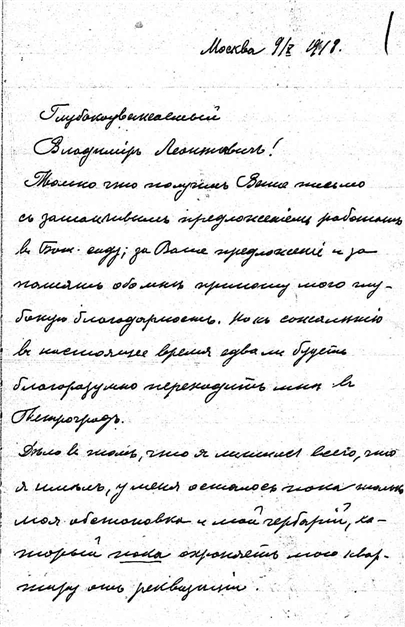 Москва 9/X 1918.
Глубокоуважаемый
Владимiръ Леонтьевичъ!
Только что получилъ Ваше письмо
съ заманчивымъ предложенiемъ работать
въ Бот. саду; за Ваше предложенiе и за
память обо мнѣ приношу мою глу-
бокую благодарность. Но къ сожалѣнiю
въ настоящее время едва ли будетъ
благоразумно переходить мнѣ въ
Петроградъ.
Дѣло въ томъ, что я лишился всего, что
я имѣлъ, у меня осталось пока только
моя обстановка и мой гербарiй, ко-
торый пока охраняетъ мою квар-
тиру отъ реквизицiи.